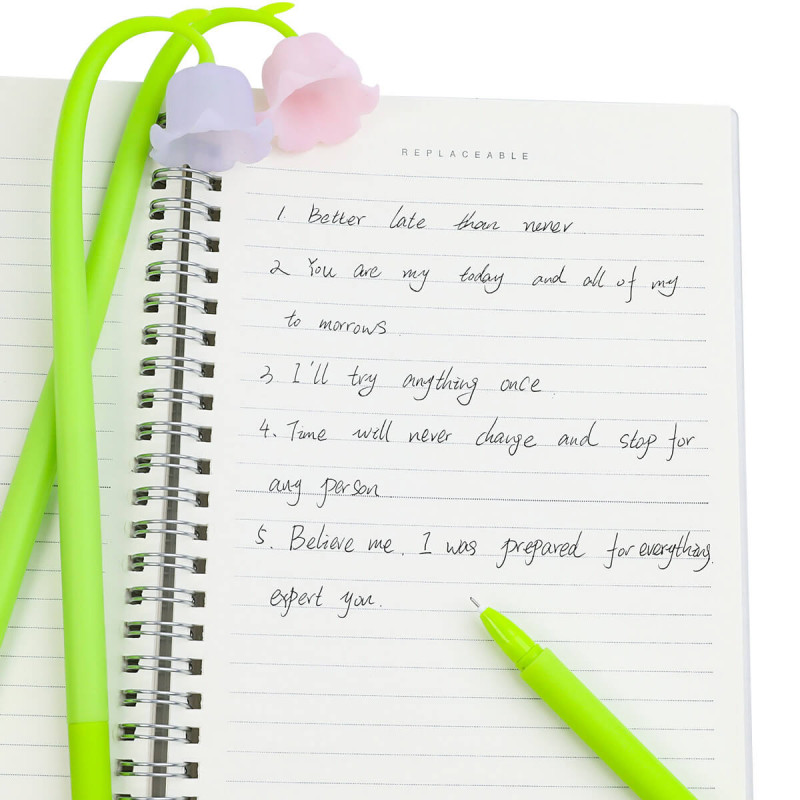 REPLACEABLE
1. Better late than never.
2 You are my today and all of my
to morrows.
3 I'll try anything once.
4. Time will never change and stop for
any person.
5. Believe me. I was prepared for everything.
expert you.